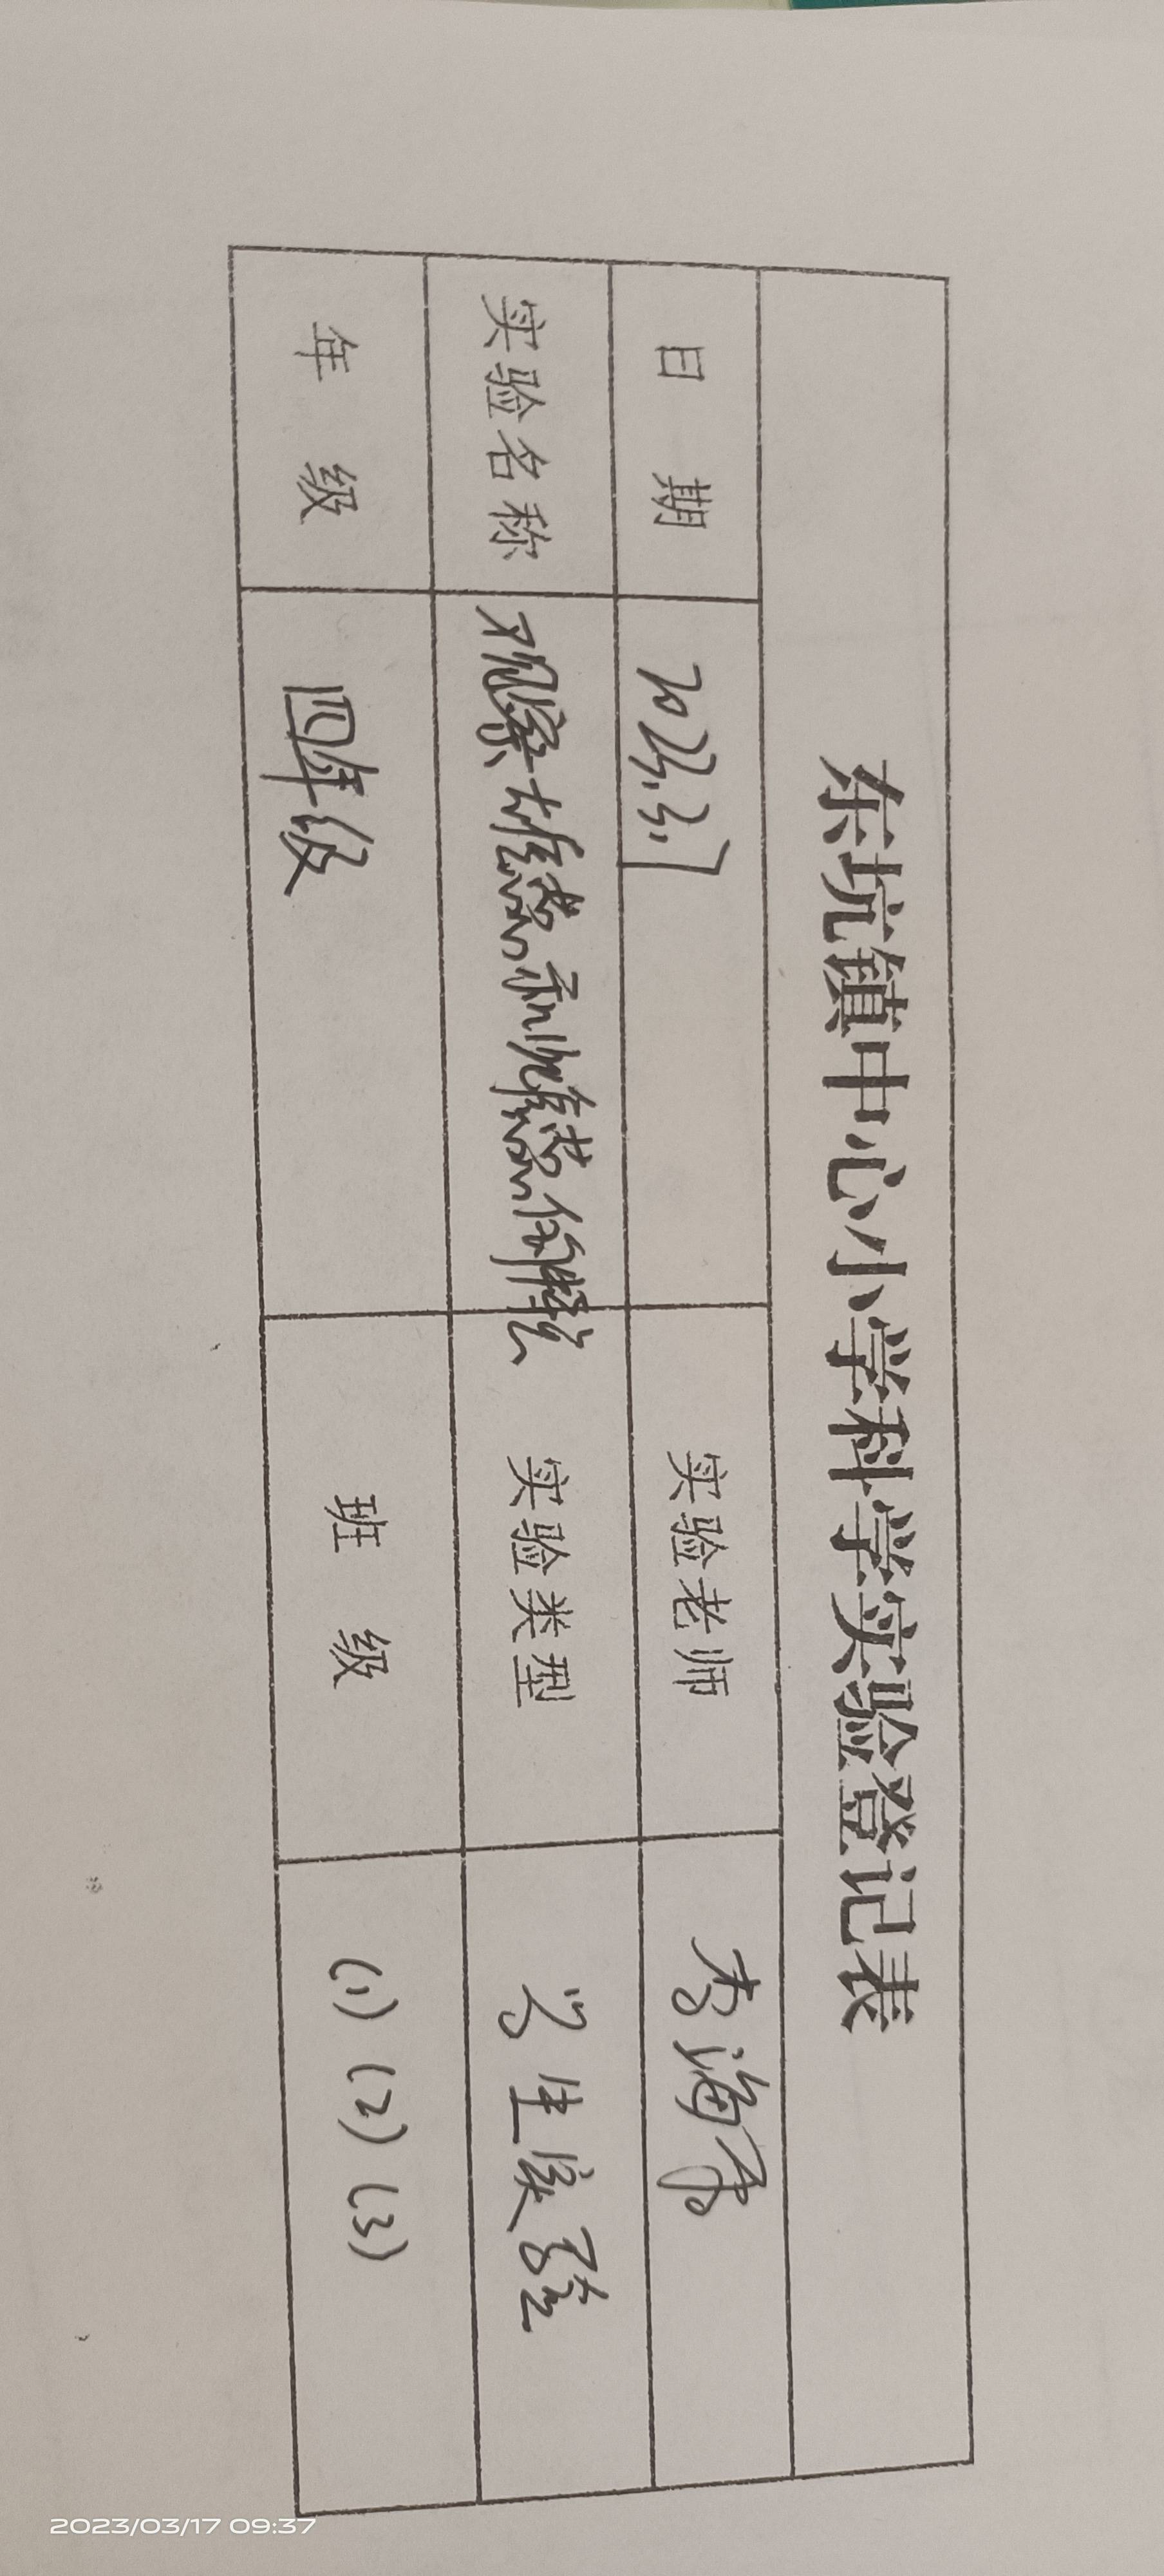 东坑镇中心小学科学实验登记表
日 期 2023.3.7 实验老师
实验名称 观察雄蕊和雌蕊的 实验类型 学生实验
年 级 四年级 班 级 (1) (2) (3)
2023/03/17 09:37